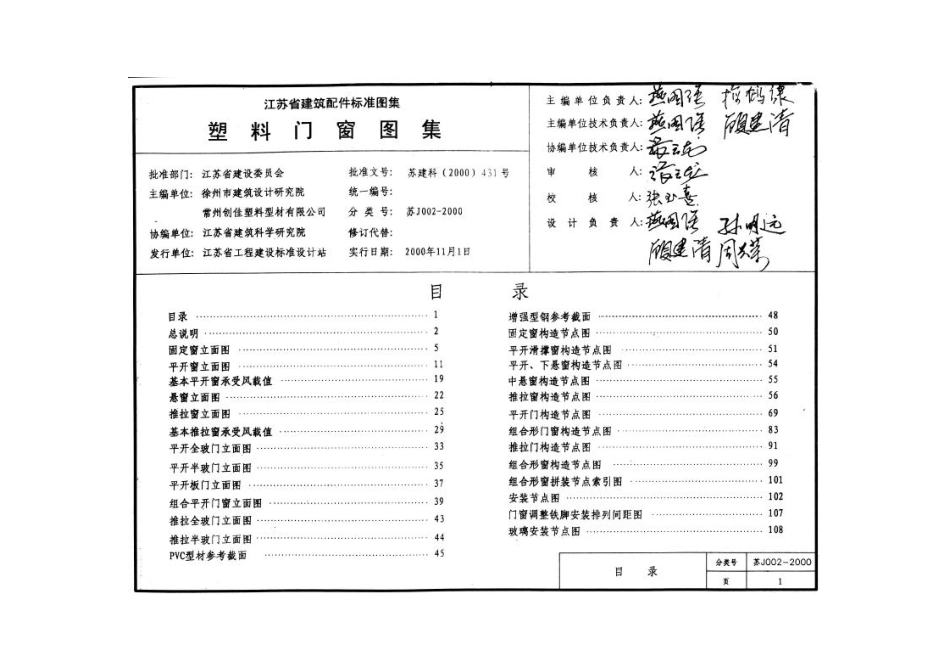 江苏省建筑配件标准图集
塑料门窗图集
批准部门: 江苏省建设委员会 批准文号: 苏建科(2000)431号
主编单位: 徐州市建筑设计研究院 统一编号:
常州创佳塑料型材有限公司 分类号: 苏J002-2000
协编单位: 江苏省建筑科学研究院 修订代替:
发行单位: 江苏省工程建设标准设计站 实行日期: 2000年11月1日
主编单位负责人:
主编单位技术负责人:
协编单位技术负责人:
审核人:
校核人:
设计负责人:
目 录
目录 1
总说明 2
固定窗立面图 5
平开窗立面图 11
基本平开窗承受风载值 19
悬窗立面图 22
推拉窗立面图 25
基本推拉窗承受风载值 29
平开全玻门立面图 33
平开半玻门立面图 35
平开板门立面图 37
组合平开门窗立面图 39
推拉全玻门立面图 43
推拉半玻门立面图 44
PVC型材参考截面 45
增强型钢参考截面 48
固定窗构造节点图 50
平开滑撑窗构造节点图 51
平开、下悬窗构造节点图 54
中悬窗构造节点图 55
推拉窗构造节点图 56
平开门构造节点图 69
组合形门窗构造节点图 83
推拉门构造节点图 91
组合形窗构造节点图 99
组合形窗拼装节点索引图 101
安装节点图 102
门窗调整铁脚安装排列间距图 107
玻璃安装节点图 108
目 录
分类号 苏J002-2000
页 1